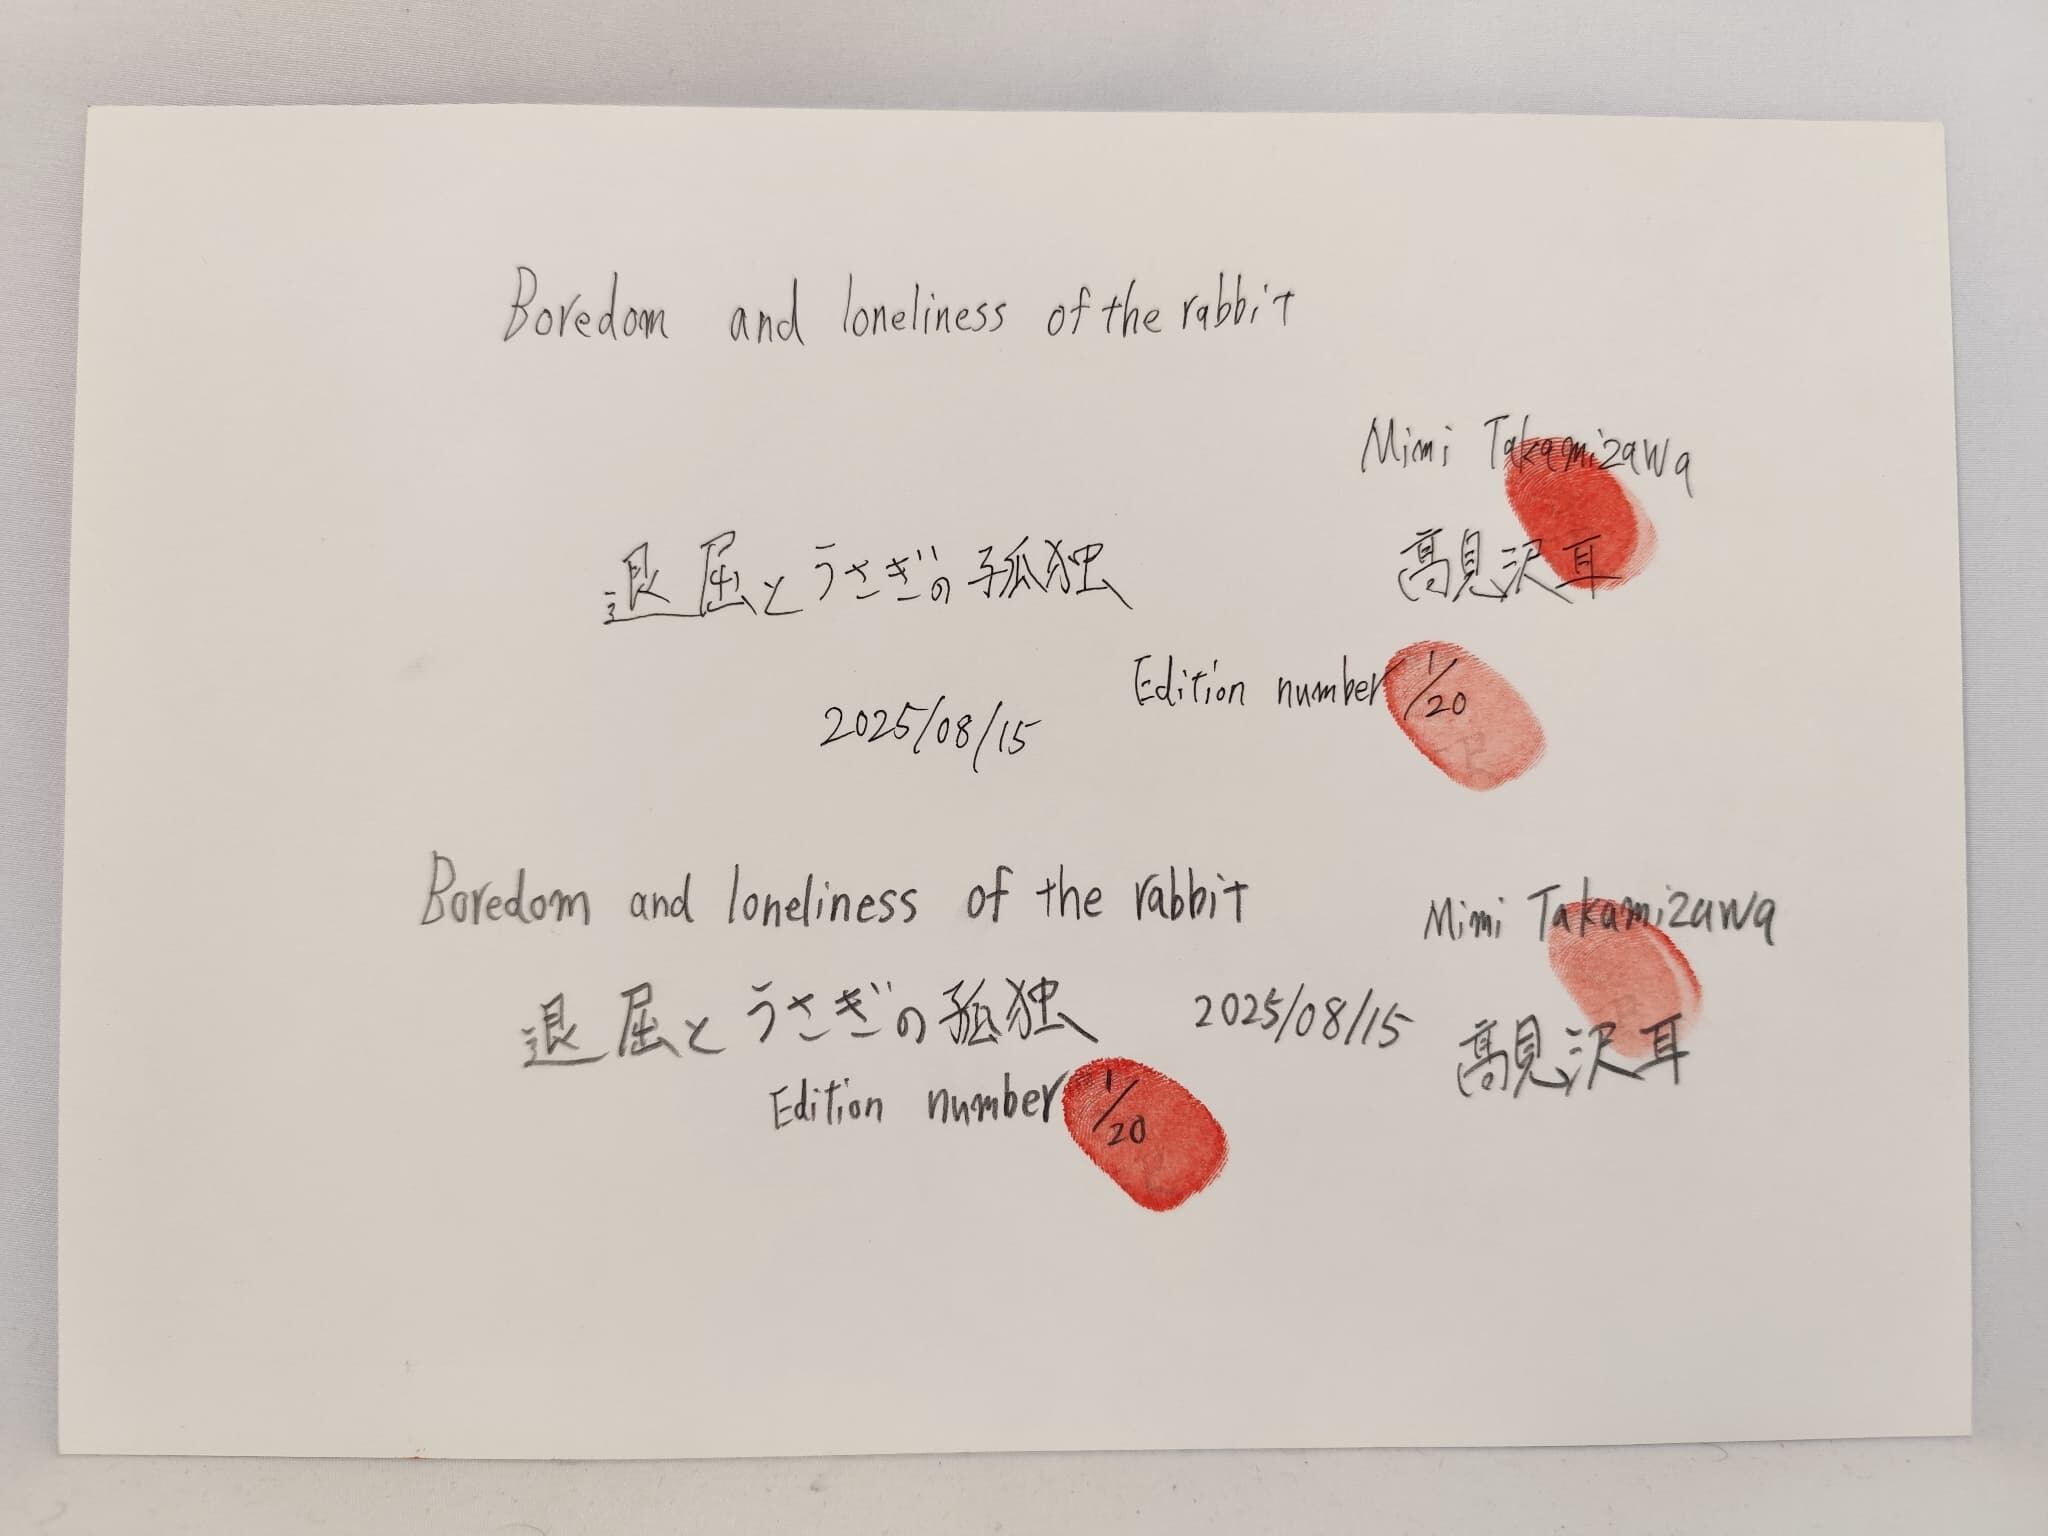 Boredom and loneliness of the rabbit
Mimi Takamizawa
退屈とうさぎの孤独
高見沢耳
Edition number 1/20
2025/08/15
Boredom and loneliness of the rabbit
Mimi Takamizawa
退屈とうさぎの孤独
2025/08/15
高見沢耳
Edition number 1/20